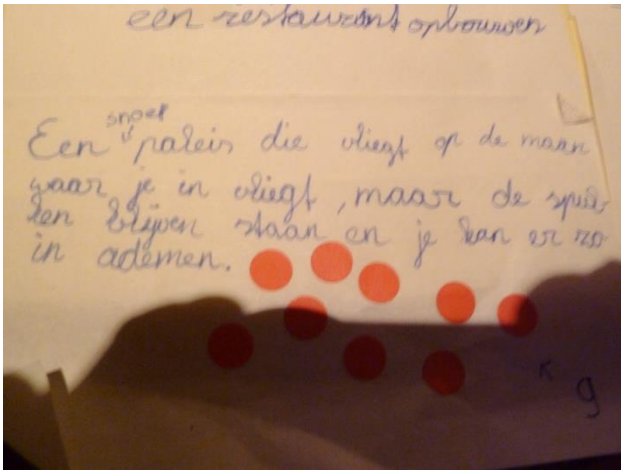 een restaurant opbouwen
snoep
Een paleis die vliegt op de maan
waar je in vliegt, maar de spul-
len blijven staan en je kan er zo
in ademen.
K
9